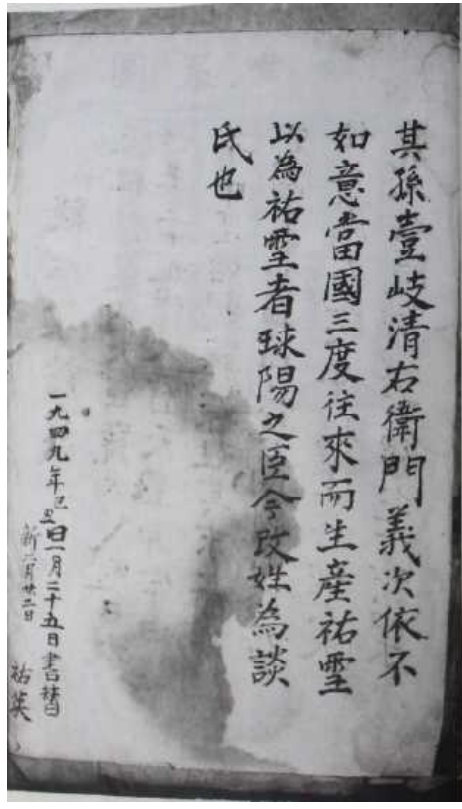 其孫壹岐清右衛門義次依不
如意當國三度往來而生産祐聖
以為祐聖者球陽之臣今改姓為談
氏也
一九四九年己丑旧一月二十五日書替
新二月廿二日
祐英